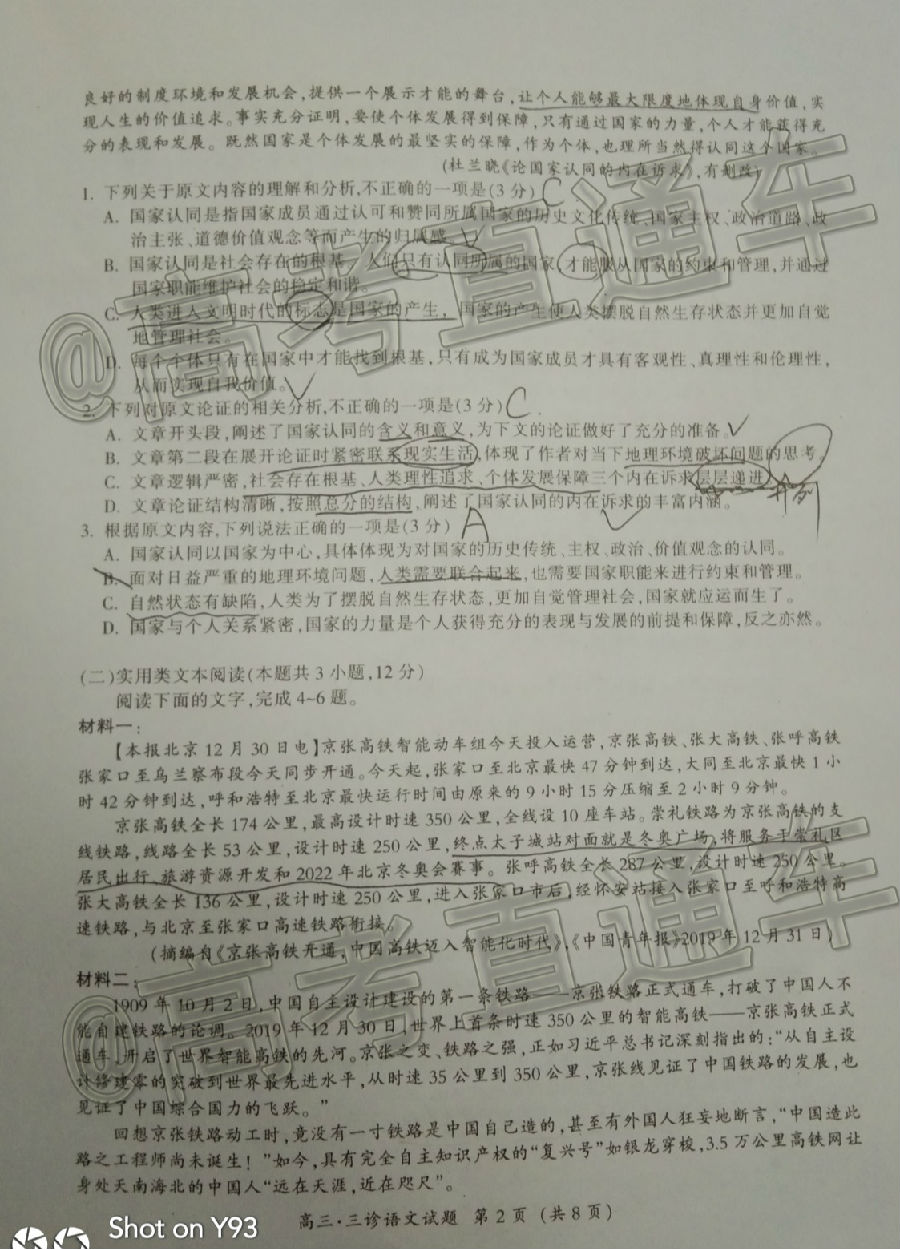 良好的制度环境和发展机会,提供一个展示才能的舞台,让个人能够最大限度地体现自身价值,实
现人生的价值追求。事实充分证明,要使个体发展得到保障,只有通过国家的力量,个人才能获得充
分的表现和发展。既然国家是个体发展的最坚实的保障,作为个体,也理所当然得认同这个国家。
(杜兰晓《论国家认同的内在诉求》,有删改)
1. 下列关于原文内容的理解和分析,不正确的一项是(3分) C
A. 国家认同是指国家成员通过认可和赞同所属国家的历史文化传统、国家主权、政治道路、政
治主张、道德价值观念等而产生的归属感。
B. 国家认同是社会存在的根基,人们只有认同所属的国家,才能服从国家的约束和管理,并通过
国家职能维护社会的稳定和谐。
C. 人类进入文明时代的标志是国家的产生,国家的产生使人类摆脱自然生存状态并更加自觉
地管理社会。
D. 每个个体只有在国家中才能找到根基,只有成为国家成员才具有客观性、真理性和伦理性,
从而实现自我价值。
2. 下列对原文论证的相关分析,不正确的一项是(3分) C
A. 文章开头段,阐述了国家认同的含义和意义,为下文的论证做好了充分的准备。
B. 文章第二段在展开论证时紧密联系现实生活,体现了作者对当下地理环境破坏问题的思考。
C. 文章逻辑严密,社会存在根基、人类理性追求、个体发展保障三个内在诉求层层递进。
并列
D. 文章论证结构清晰,按照总分的结构,阐述了国家认同的内在诉求的丰富内涵。
3. 根据原文内容,下列说法正确的一项是(3分) A
A. 国家认同以国家为中心,具体体现为对国家的历史传统、主权、政治、价值观念的认同。
B. 面对日益严重的地理环境问题,人类需要联合起来,也需要国家职能来进行约束和管理。
C. 自然状态有缺陷,人类为了摆脱自然生存状态,更加自觉管理社会,国家就应运而生了。
D. 国家与个人关系紧密,国家的力量是个人获得充分的表现与发展的前提和保障,反之亦然。
(二)实用类文本阅读(本题共3小题,12分)
阅读下面的文字,完成4~6题。
材料一:
【本报北京12月30日电】京张高铁智能动车组今天投入运营,京张高铁、张大高铁、张呼高铁
张家口至乌兰察布段今天同步开通。今天起,张家口至北京最快47分钟到达,大同至北京最快1小
时42分钟到达,呼和浩特至北京最快运行时间由原来的9小时15分压缩至2小时9分钟。
京张高铁全长174公里,最高设计时速350公里,全线设10座车站。崇礼铁路为京张高铁的支
线铁路,线路全长53公里,设计时速250公里,终点太子城站对面就是冬奥广场,将服务于崇礼区
居民出行、旅游资源开发和2022年北京冬奥会赛事。张呼高铁全长287公里,设计时速250公里。
张大高铁全长136公里,设计时速250公里,进入张家口市后,经怀安站接入张家口至呼和浩特高
速铁路,与北京至张家口高速铁路衔接。
(摘编自《京张高铁开通,中国高铁迈入智能化时代》,《中国青年报》2019年12月31日)
材料二:
1909年10月2日,中国自主设计建设的第一条铁路——京张铁路正式通车,打破了中国人不
能自建铁路的论调。2019年12月30日,世界上首条时速350公里的智能高铁——京张高铁正式
通车,开启了世界智能高铁的先河。京张之变、铁路之强,正如习近平总书记深刻指出的:“从自主设
计修建零的突破到世界最先进水平,从时速35公里到350公里,京张线见证了中国铁路的发展,也
见证了中国综合国力的飞跃。”
回想京张铁路动工时,竟没有一寸铁路是中国自己造的,甚至有外国人狂妄地断言,“中国造此
路之工程师尚未诞生!”如今,具有完全自主知识产权的“复兴号”如银龙穿梭,3.5万公里高铁网让
身处天南海北的中国人“远在天涯,近在咫尺”。
高三·三诊语文试题 第2页 (共8页)
@高考直通车
@高考直通车
Shot on Y93